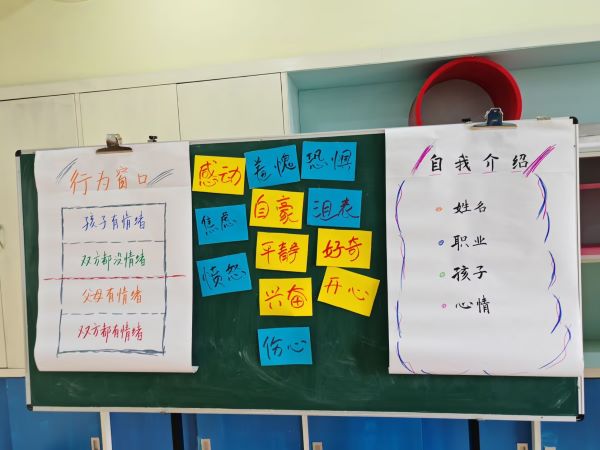 行为窗口
孩子有情绪
双方都没情绪
父母有情绪
双方都有情绪
感动
羞愧
恐惧
焦虑
自豪
沮丧
平静
好奇
愤怒
兴奋
开心
伤心
自我介绍
姓名
职业
孩子
心情